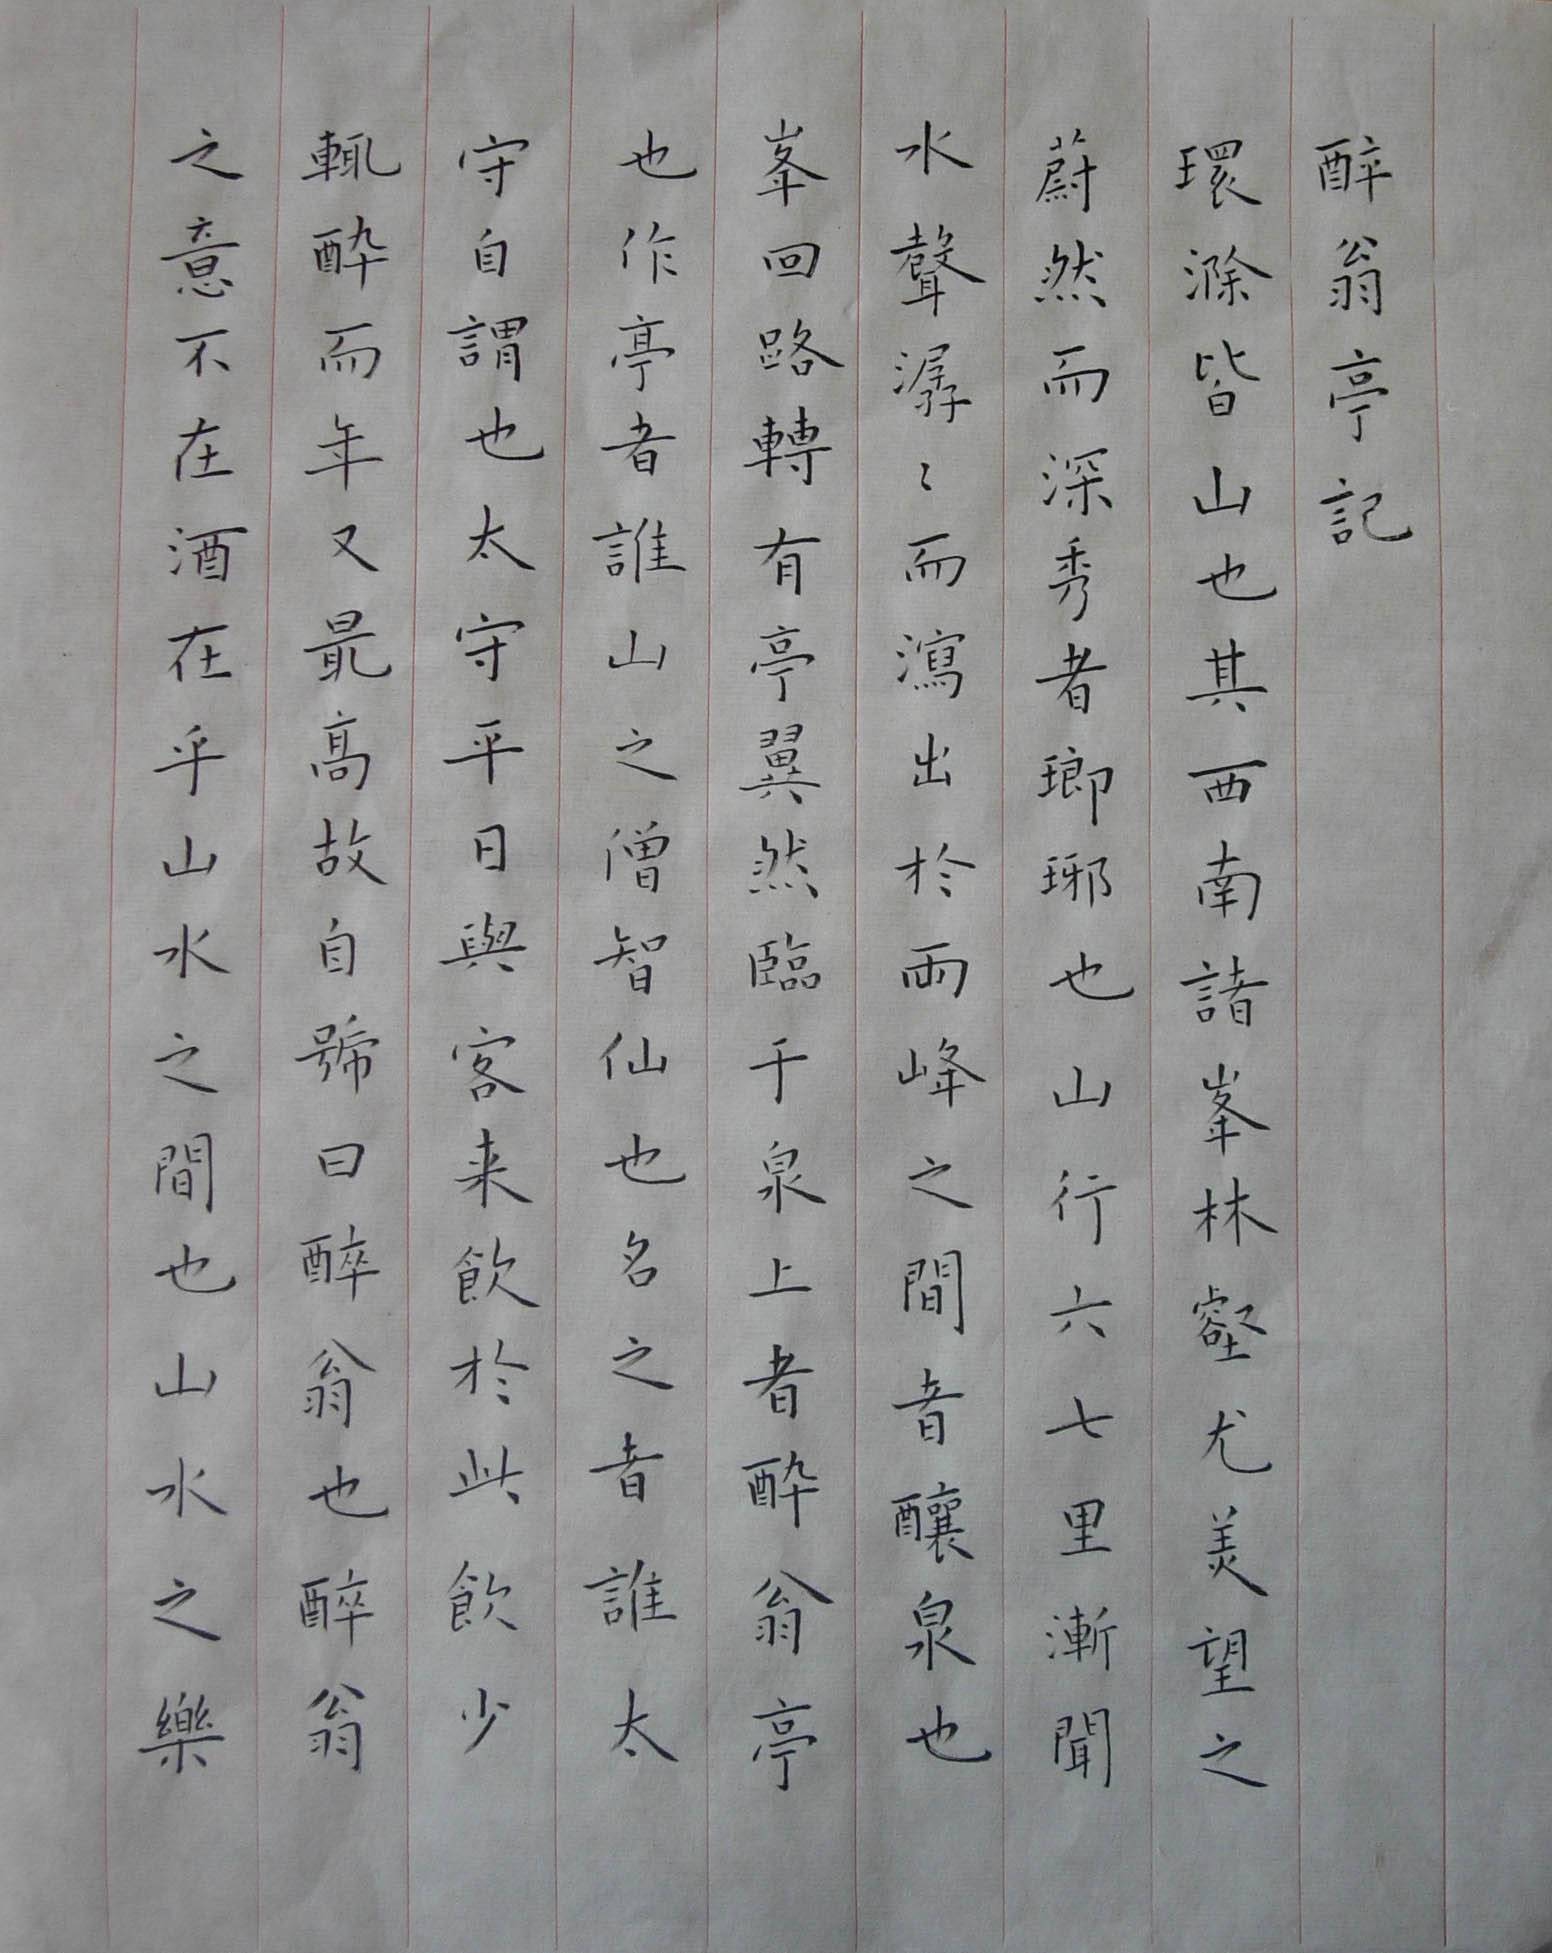 醉翁亭記
環滁皆山也其西南諸峯林壑尤美望之
蔚然而深秀者瑯琊也山行六七里漸聞
水聲潺〻而瀉出於兩峰之間者釀泉也
峯回路轉有亭翼然臨于泉上者酔翁亭
也作亭者誰山之僧智仙也名之者誰太
守自謂也太守平日與客来飲於此飲少
輒酔而年又最高故自號曰醉翁也醉翁
之意不在酒在乎山水之間也山水之樂